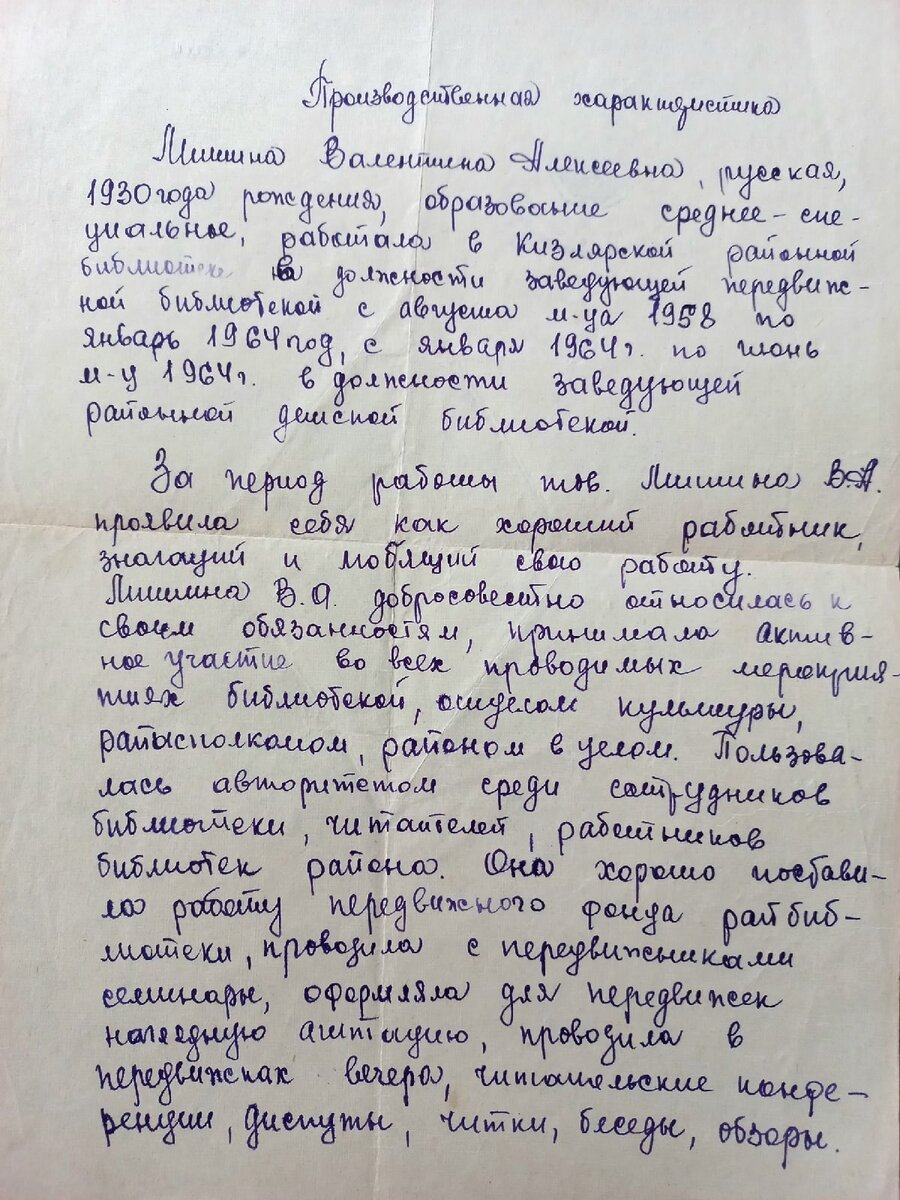 Производственная характеристика
Мишина Валентина Алексеевна, русская,
1930 года рождения, образование среднее-спе-
циальное, работала в Кизлярской районной
библиотеке в должности заведующей передвиж-
ной библиотекой с августа м-ца 1958 по
январь 1964 год, с января 1964 г. по июнь
м-ц 1964 г. в должности заведующей
районной детской библиотекой.
За период работы тов. Мишина В.А.
проявила себя как хороший работник,
знающий и любящий свою работу.
Мишина В.А. добросовестно относилась к
своим обязанностям, принимала актив-
ное участие во всех проводимых мероприя-
тиях библиотекой, отделом культуры,
райисполкомом, районом в целом. Пользова-
лась авторитетом среди сотрудников
библиотеки, читателей, работников
библиотек района. Она хорошо постави-
ла работу передвижного фонда райбиб-
лиотеки, проводила с передвижниками
семинары, оформляла для передвижек
наглядную агитацию, проводила в
передвижках вечера, читательские конфе-
ренции, диспуты, читки, беседы, обзоры.